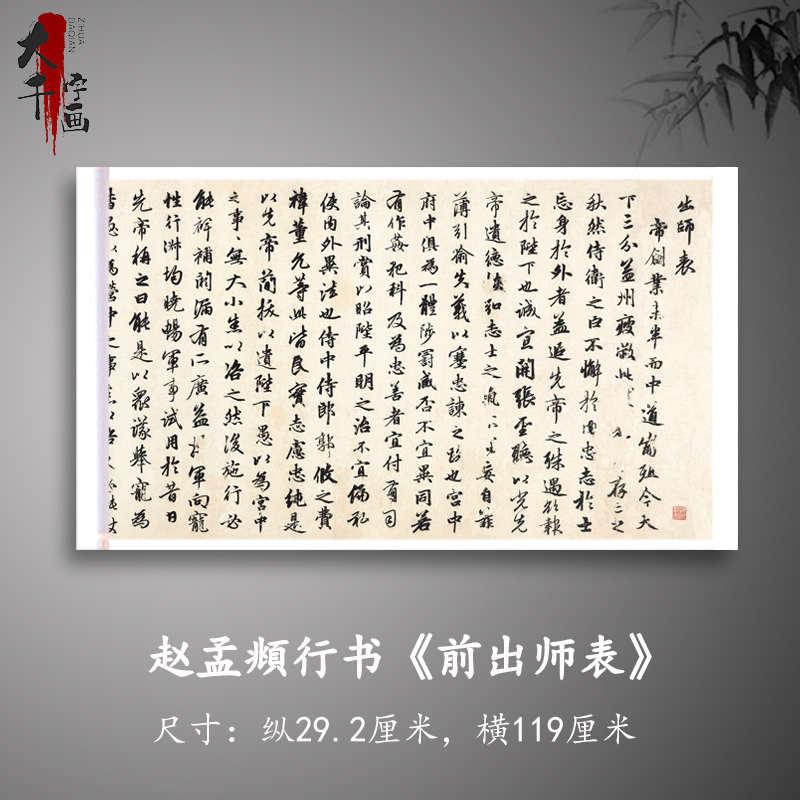 大千字画
ZIHUA
DAQIAN
出師表
帝創業未半而中道崩殂今天
下三分益州疲敝此存亡之
秋然侍衛之臣不懈於内忠志於士
忘身於外者蓋追先帝之殊遇欲報
之於陛下也誠宜開張聖聽以光先
帝遺德恢弘志士之氣不宜妄自菲
薄引喻失義以塞忠諫之路也宮中
府中俱為一體陟罰臧否不宜異同若
有作姦犯科及為忠善者宜付有司
論其刑賞以昭陛平明之治不宜偏私
使內外異法也侍中侍郎郭攸之費
禕董允等此皆良實志慮忠純是
以先帝簡拔以遺陛下愚以為宮中
之事事無大小悉以咨之然後施行必
能裨補闕漏有所廣益將軍向寵
性行淑均曉暢軍事試用於昔日
先帝稱之曰能是以眾議舉寵為
愚以為營中之事
赵孟頫行书《前出师表》
尺寸：纵29.2厘米，横119厘米